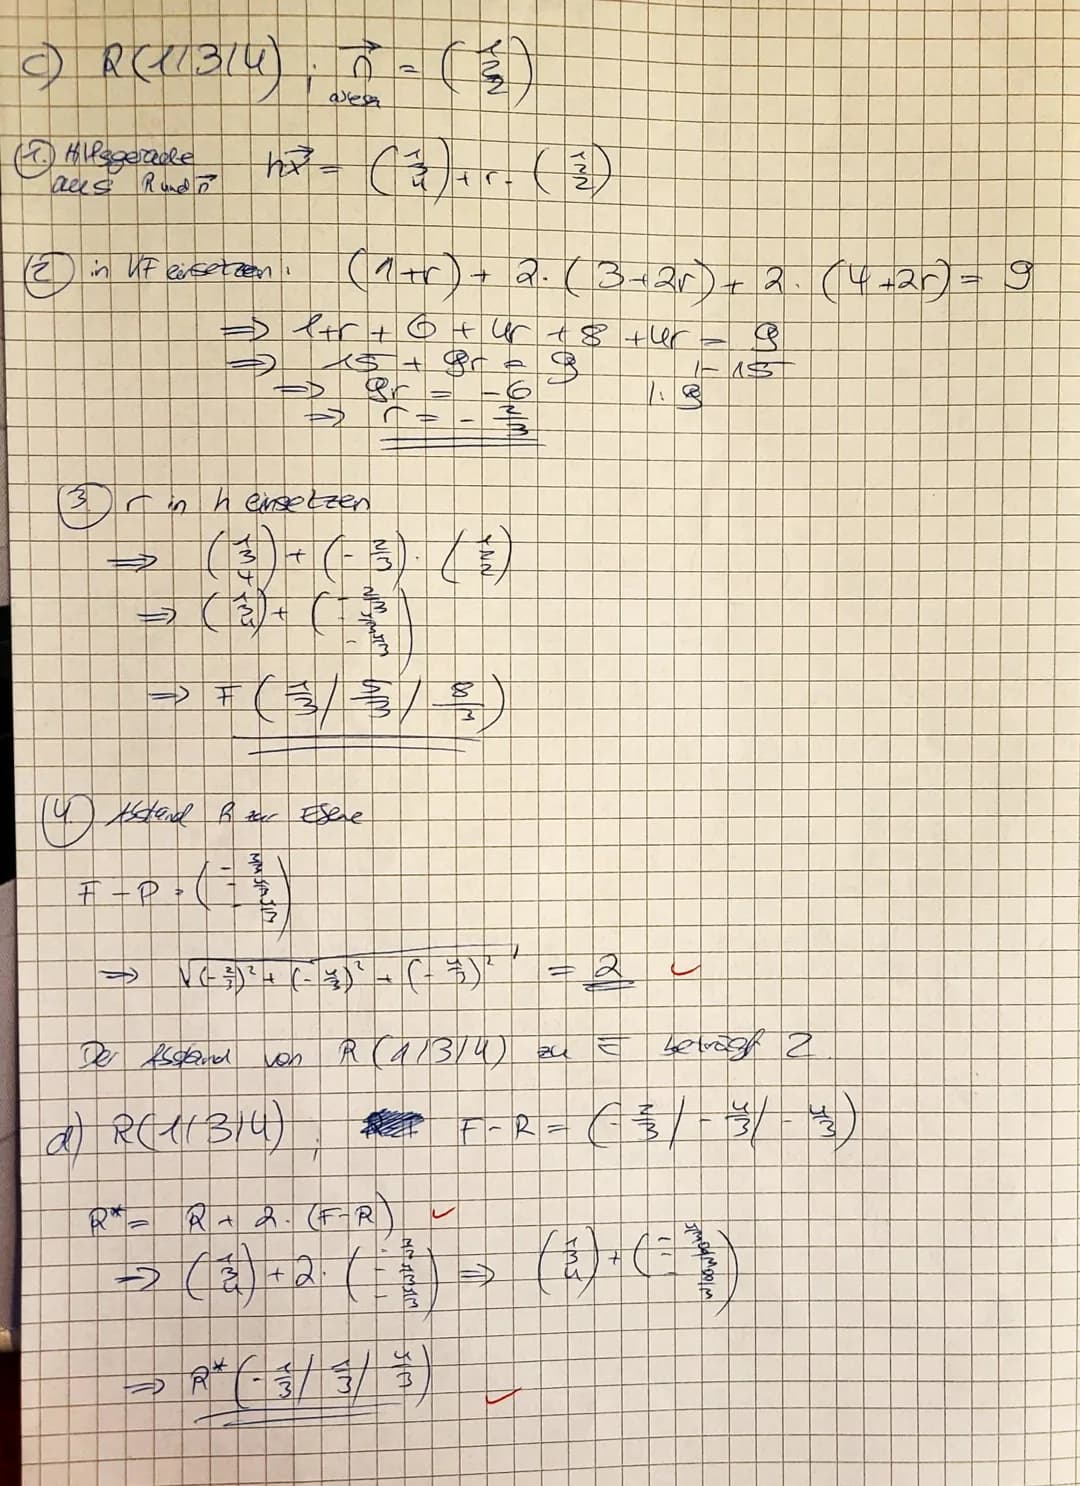 c) R(1/3/4) ; n⃗ = (1 2 2)
diese
1. Hilfsgerade h: x⃗ = (1 3 4) + r · (1 2 2)
aus R und n⃗
2. in KF einsetzen: (1+r) + 2·(3+2r) + 2·(4+2r) = 9
⇒ 1+r + 6 + 4r + 8 + 4r = 9
⇒ 15 + 9r = 9 |-15
⇒ 9r = -6 |:9
⇒ r = - 2/3
3. r in h einsetzen
⇒ (1 3 4) + (- 2/3) · (1 2 2)
⇒ (1 3 4) + (- 2/3 - 4/3 - 4/3)
⇒ F (1/3 / 5/3 / 8/3)
4. Abstand R zur Ebene
F - P = (- 2/3 - 4/3 - 4/3)
⇒ √(- 2/3)² + (- 4/3)² + (- 4/3)² = 2 ✓
Der Abstand von R (1/3/4) zu E beträgt 2.
d) R(1/3/4) ; F - R = (- 2/3 / - 4/3 / - 4/3)
R* = R + 2 · (F-R) ✓
→ (1 3 4) + 2 · (- 2/3 - 4/3 - 4/3) ⇒ (1 3 4) + (- 4/3 - 8/3 - 8/3)
⇒ R* (- 1/3 / 1/3 / 4/3) ✓